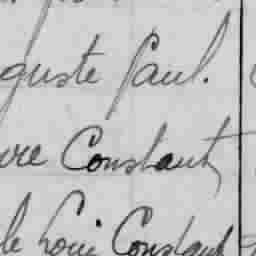 guste Paul.
vre Constant,
le Louis Constant